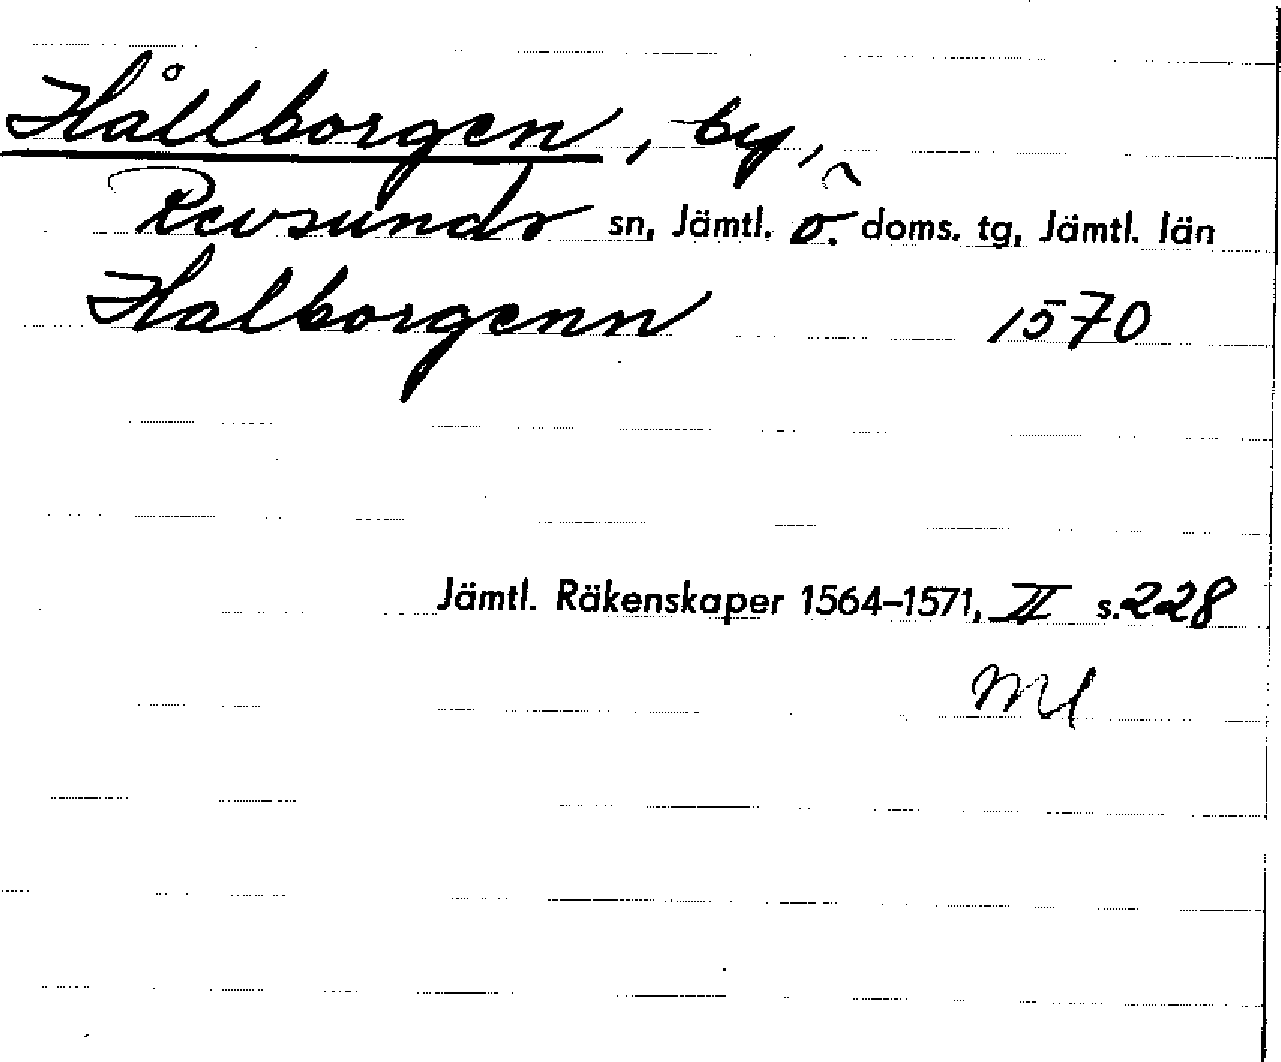 Hållborgen, by,
Revsunds sn, Jämtl. ö. doms. tg, Jämtl. län
Halborgenn 1570
Jämtl. Räkenskaper 1564–1571, II s. 228